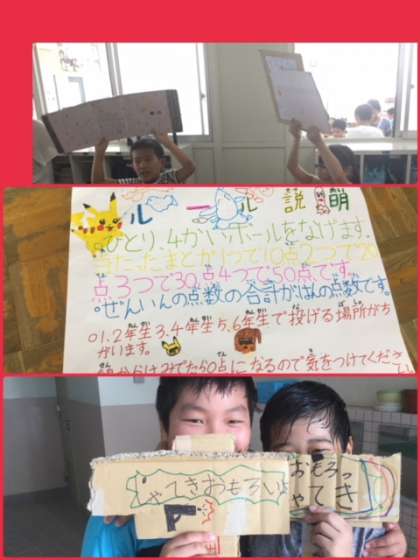 ルール説明
○ひとり、4かいッボールをなげます。
当たったまとが1つで10点2つで20
点3つで30点4つで50点です。
○ぜんいんの点数の合計がはんの点数です。
○1.2年生3.4年生5.6年生で投げる場所がち
がいます。
からはみでたら0点になるので気をつけてくださ
しゃてきおもろいよ
おもろっ
しゃてき